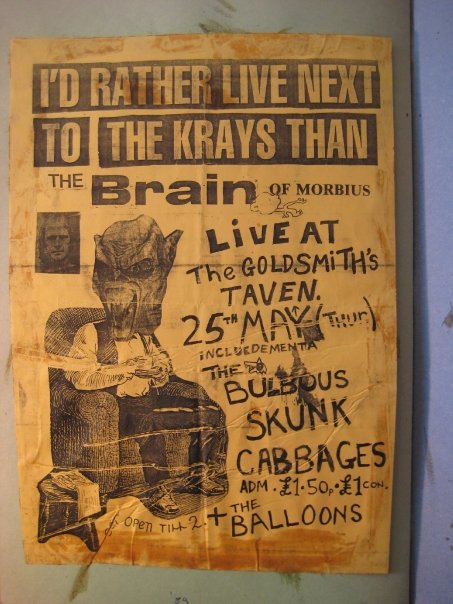 I'D RATHER LIVE NEXT
TO THE KRAYS THAN
THE Brain OF MORBIUS
LIVE AT
The GOLDSMITH'S
TAVEN.
25TH MAY (THUR)
INCLUEDEMENTA
THE
BULBOUS
SKUNK
CABBAGES
ADM. £1.50p. £1 CON.
OPEN TILL 2. + THE
BALLOONS